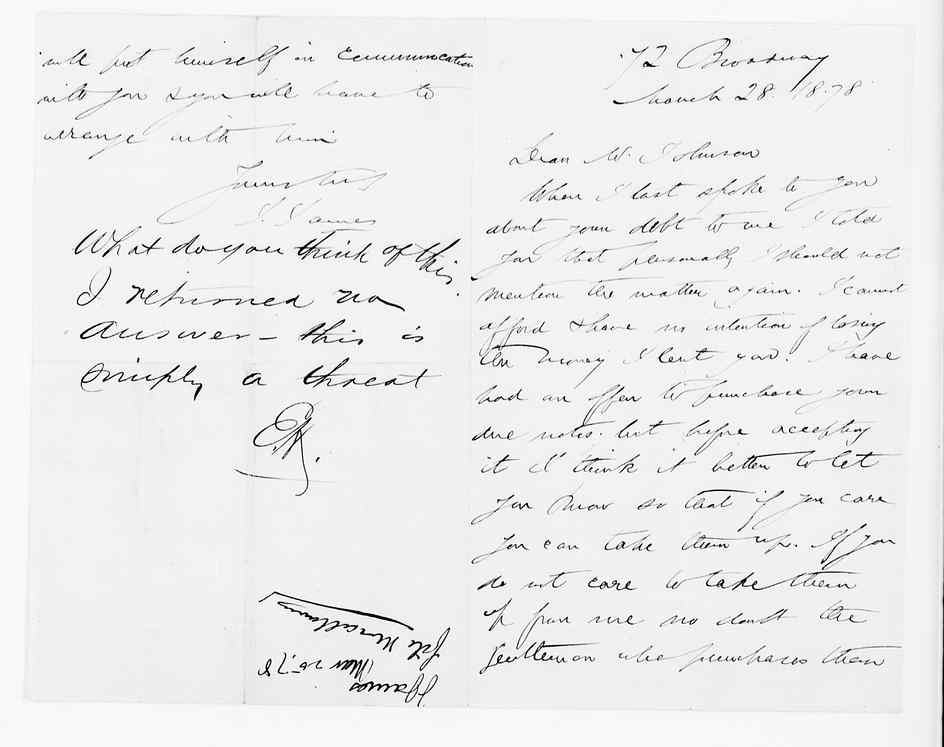 72 Broadway
March 28. 1878
Dear Mr. Johnson
When I last spoke to you
about your debt to me I told
you that personally I should not
mention the matter again. I cannot
afford & have no intention of losing
the money I lent you. I have
had an offer to purchase your
due notes. but before accepting
it I think it better to let
you know so that if you care
you can take them up. If you
do not care to take them
up from me no doubt the
gentleman who purchases them
will put himself in Communication
with you & you will have to
arrange with him
Yours truly
What do you think of this.
I returned no
answer – this is
simply a threat
Mar 78